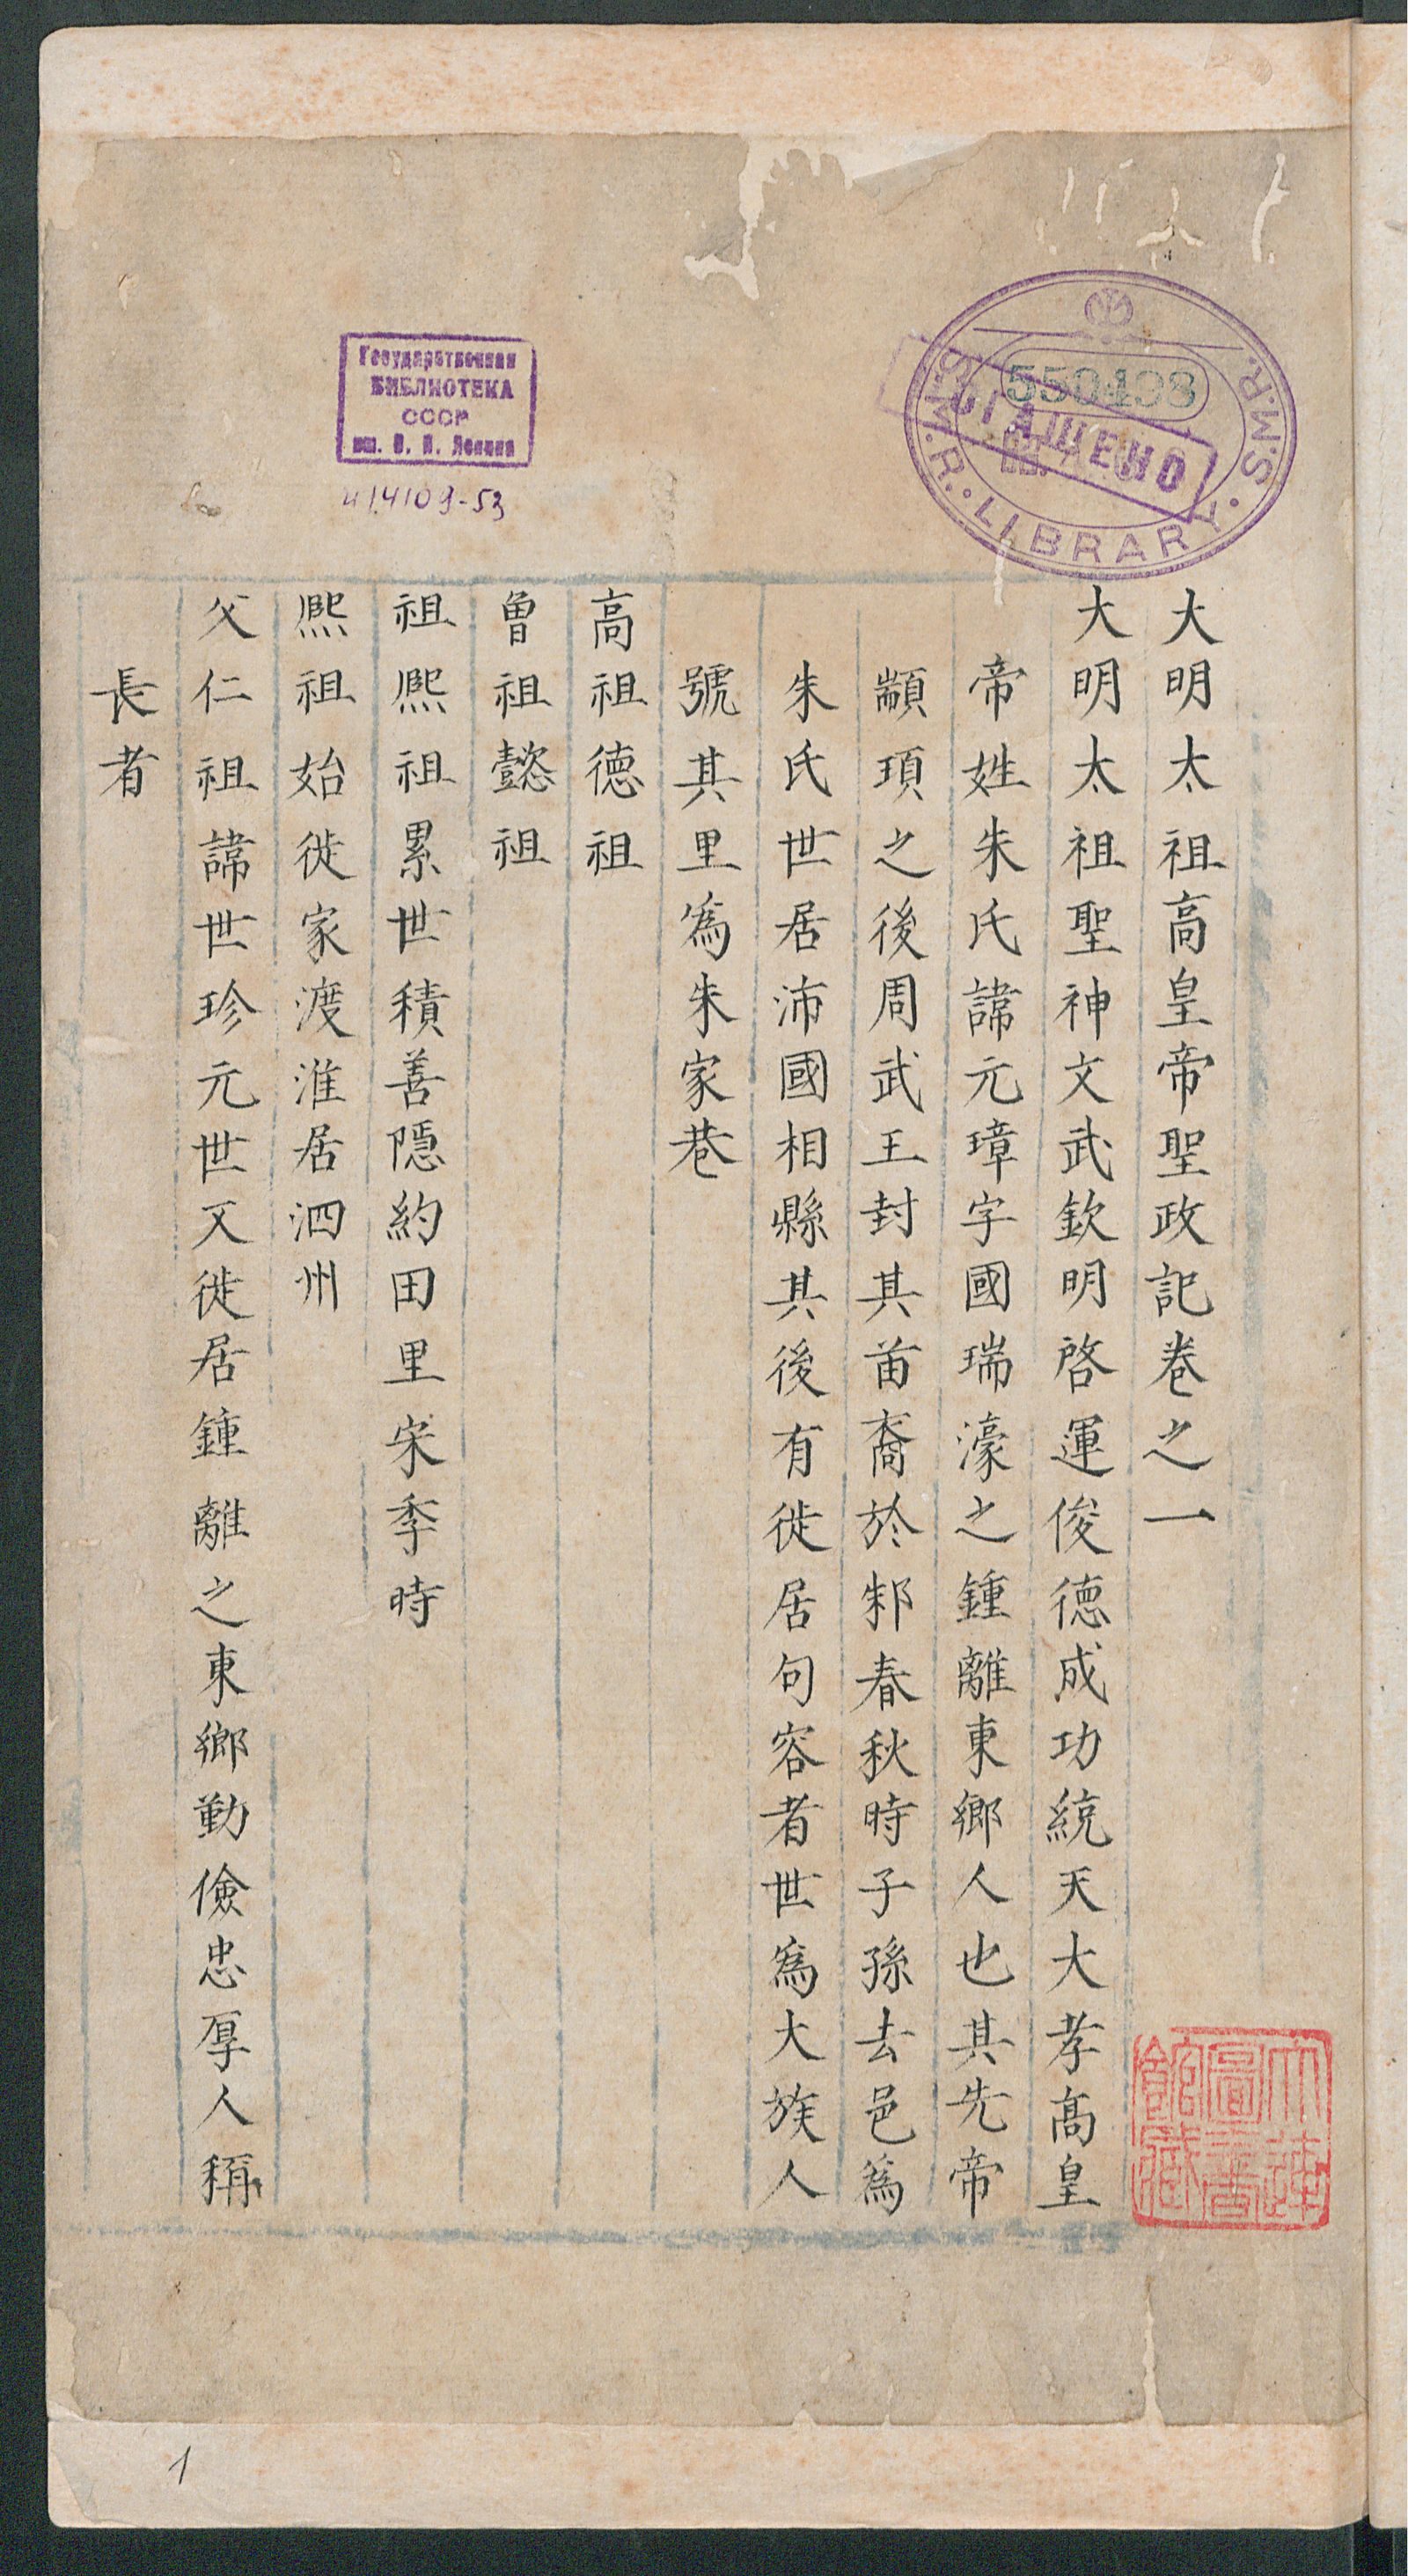 大明太祖高皇帝聖政記卷之一
大明太祖聖神文武欽明啓運俊德成功統天大孝高皇
帝姓朱氏諱元璋字國瑞濠之鍾離東鄉人也其先帝
顓頊之後周武王封其苗裔於邾春秋時子孫去邑爲
朱氏世居沛國相縣其後有徙居句容者世爲大族人
號其里爲朱家巷
高祖德祖
曾祖懿祖
祖熈祖累世積善隱約田里宋季時
熈祖始徙家渡淮居泗州
父仁祖諱世珍元世又徙居鍾離之東鄉勤儉忠厚人稱
長者
S.M.R. LIBRARY S.M.R.
550498
ПОГАШЕНО
Государственная
БИБЛИОТЕКА
СССР
им. В. И. Ленина
и14109-53
大連
圖書
館藏
1